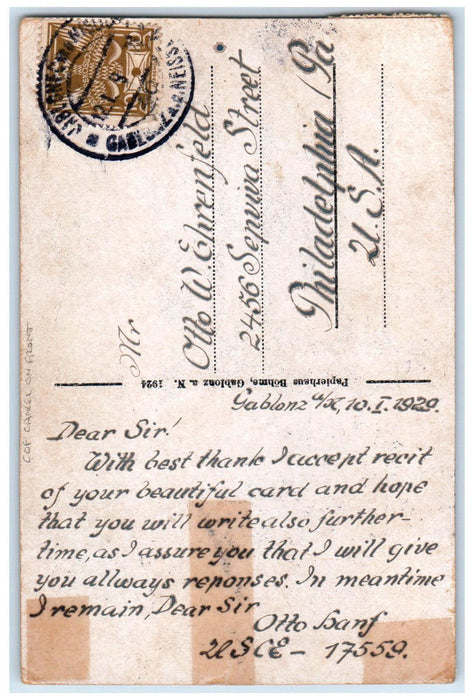 Mr
Otto W. Ehrenfeld
2456 Sepviva Street
Philadelphia / Pa
U.S.A.
Papierhaus Böhme, Gablonz a. N. 1924
COF CANCEL ON FRONT
GABLONZ A.D. NEISSE
Gablonz a/N, 10.I.1929.
Dear Sir!
With best thank I accept recit
of your beautiful card and hope
that you will write also further-
time, as I assure you that I will give
you allways reponses. In meantime
I remain, Dear Sir
Otto Hanf
USCE - 17559.